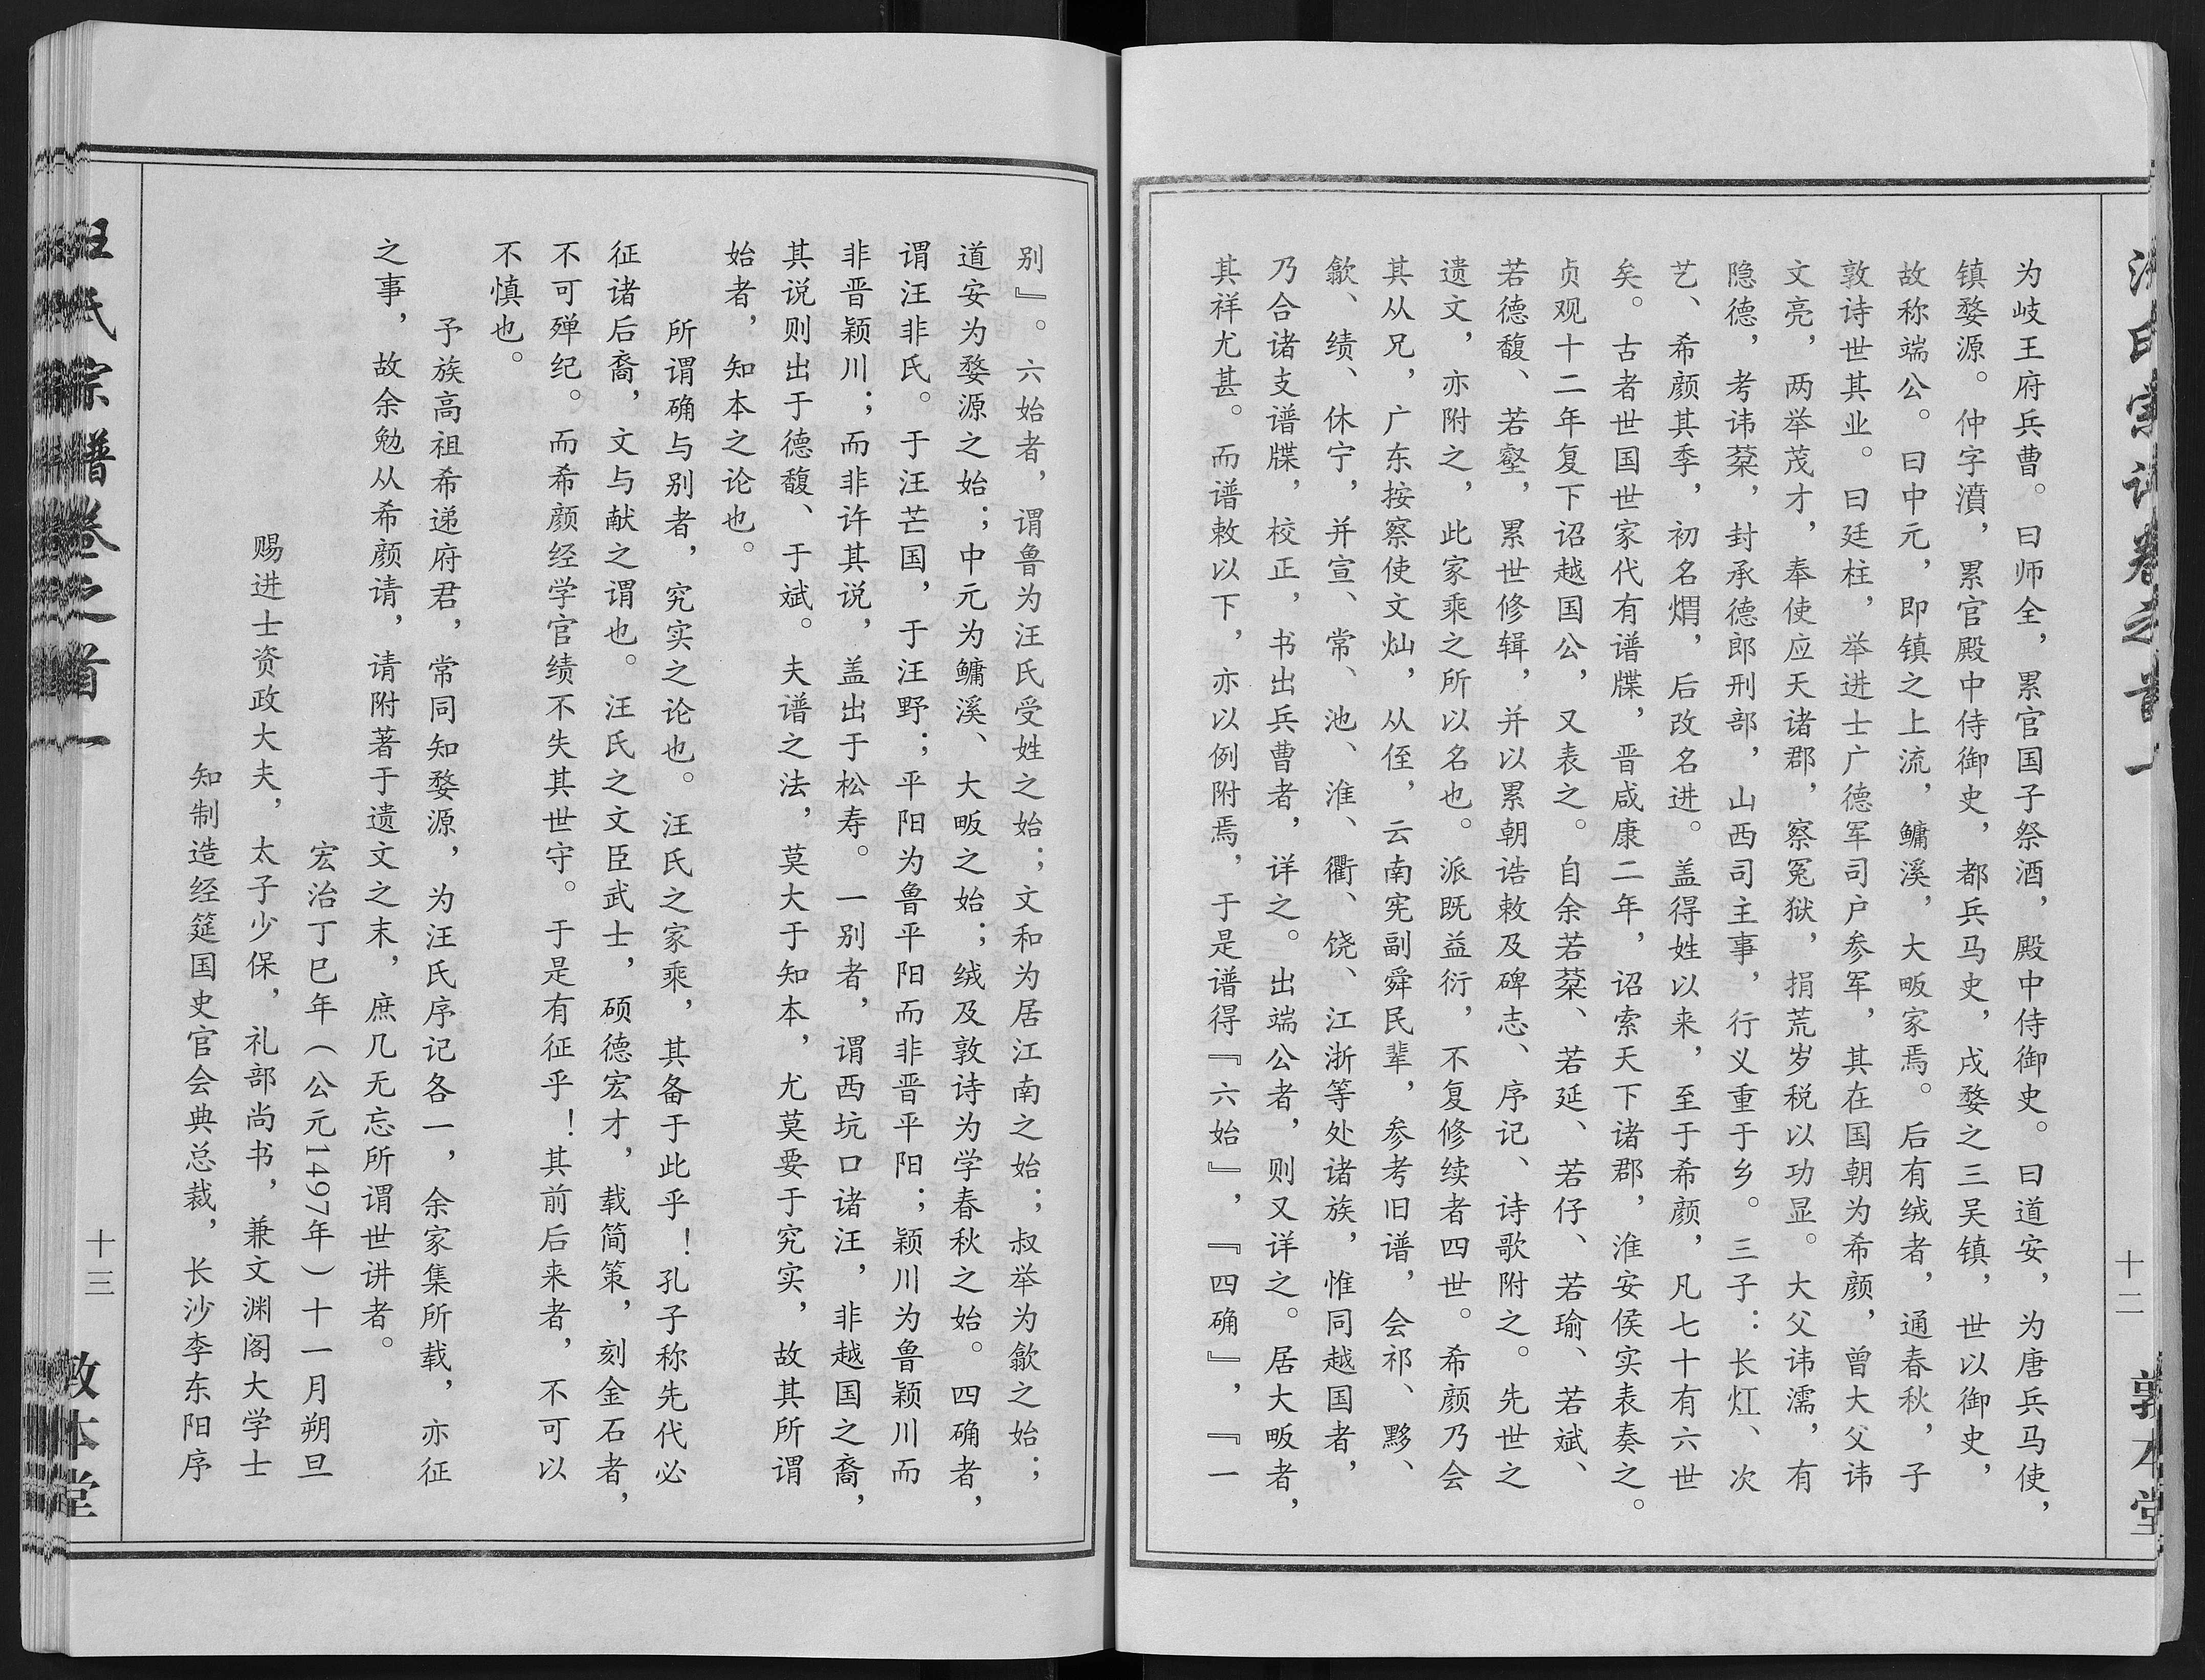 汪氏宗谱卷之首一
十二
敦本堂
为岐王府兵曹。曰师全，累官国子祭酒，殿中侍御史。曰道安，为唐兵马使，
镇婺源。仲字濆，累官殿中侍御史，都兵马史，戌婺之三吴镇，世以御史，
故称端公。曰中元，即镇之上流，鳙溪，大畈家焉。后有绒者，通春秋，子
敦诗世其业。曰廷柱，举进士广德军司户参军，其在国朝为希颜，曾大父讳
文亮，两举茂才，奉使应天诸郡，察冤狱，捐荒岁税以功显。大父讳濡，有
隐德，考讳棨，封承德郎刑部，山西司主事，行义重于乡。三子：长灴、次
艺、希颜其季，初名熠，后改名进。盖得姓以来，至于希颜，凡七十有六世
矣。古者世国世家代有谱牒，晋咸康二年，诏索天下诸郡，淮安侯实表奏之。
贞观十二年复下诏越国公，又表之。自余若棨、若延、若仔、若瑜、若斌、
若德馥、若壑，累世修辑，并以累朝诰敕及碑志、序记、诗歌附之。先世之
遗文，亦附之，此家乘之所以名也。派既益衍，不复修续者四世。希颜乃会
其从兄，广东按察使文灿，从侄，云南宪副舜民辈，参考旧谱，会祁、黟、
歙、绩、休宁，并宣、常、池、淮、衢、饶、江浙等处诸族，惟同越国者，
乃合诸支谱牒，校正，书出兵曹者，详之。出端公者，则又详之。居大畈者，
其祥尤甚。而谱敕以下，亦以例附焉，于是谱得『六始』，『四确』，『一
别』。六始者，谓鲁为汪氏受姓之始；文和为居江南之始；叔举为歙之始；
道安为婺源之始；中元为鳙溪、大畈之始；绒及敦诗为学春秋之始。四确者，
谓汪非氏。于汪芒国，于汪野；平阳为鲁平阳而非晋平阳；颖川为鲁颖川而
非晋颖川；而非许其说，盖出于松寿。一别者，谓西坑口诸汪，非越国之裔，
其说则出于德馥、于斌。夫谱之法，莫大于知本，尤莫要于究实，故其所谓
始者，知本之论也。
所谓确与别者，究实之论也。汪氏之家乘，其备于此乎！孔子称先代必
征诸后裔，文与献之谓也。汪氏之文臣武士，硕德宏才，载简策，刻金石者，
不可殚纪。而希颜经学官绩不失其世守。于是有征乎！其前后来者，不可以
不慎也。
予族高祖希递府君，常同知婺源，为汪氏序记各一，余家集所载，亦征
之事，故余勉从希颜请，请附著于遗文之末，庶几无忘所谓世讲者。
宏治丁巳年（公元1497年）十一月朔旦
赐进士资政大夫，太子少保，礼部尚书，兼文渊阁大学士
知制造经筵国史官会典总裁，长沙李东阳序
汪氏宗谱卷之首一
十三
敦本堂